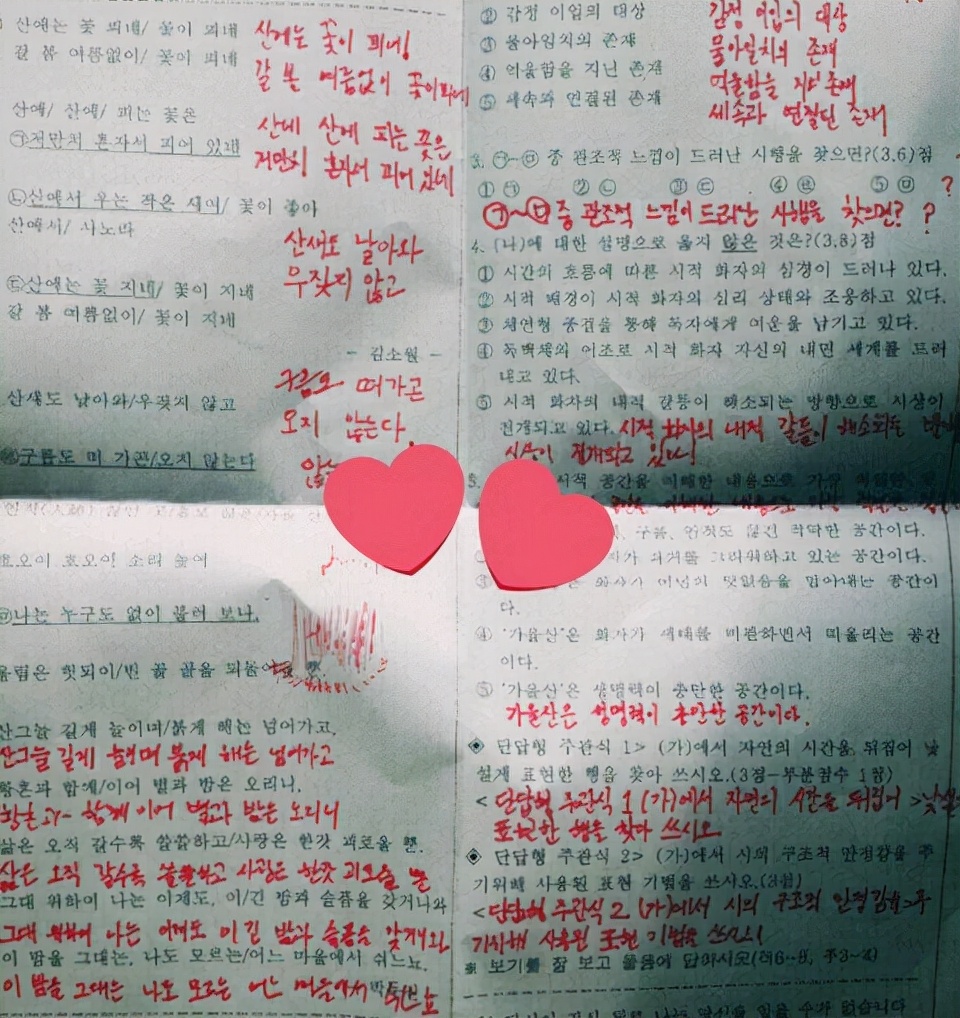 산에는 꽃 피네/ 꽃이 피네
산에는 꽃이 피네!
갈 봄 여름없이/ 꽃이 피네
갈 봄 여름없이 꽃이피네
산에/ 산에/ 피는 꽃은
산네 산에 피는 꽃은
㉠저만치 혼자서 피어 있네
저만치 혼자서 피어 있네
㉡산에서 우는 작은 새여/ 꽃이 좋아
산에서/ 사노라
산새도 날아와
우짖지 않고
㉢산에는 꽃 지네/ 꽃이 지네
갈 봄 여름없이/ 꽃이 지네
- 김소월 -
구름도 떠가곤
산새도 날아와/우짖지 않고
오지 않는다.
구름도 떠 가곤/오지 않는다
호오이 호오이! 소리 높여
㉤나는 누구도 없이 불러 보나.
울림은 헛되이/빈 골 골을 되돌아
산그늘 길게 늘이며/붉게 해는 넘어가고,
산그늘 길게 늘이며 붉게 해는 넘어가고
황혼과 함께/이어 별과 밤은 오리니.
황혼과 함께 이어 별과 밤은 오리니
삶은 오직 갈수록 쓸쓸하고/사랑은 한갓 괴로울 뿐.
삶은 오직 갈수록 쓸쓸하고 사랑은 한갓 괴로울 뿐
그대 위하여 나는 이제도, 이/긴 밤과 슬픔을 갖거니와
그대 위해여 나는 이제도 이 긴 밤과 슬픔을 갖거니와
이 밤을 그대는, 나도 모르는/어느 마을에서 쉬느뇨.
이 밤을 그대는 나도 모르는 어느 마을에서
② 감정 이입의 대상
감정 이입의 대상
③ 물아일치의 존재
물아일치의 존재
④ 억울함을 지닌 존재
억울함을 지닌 존재
⑤ 세속과 연결된 존재
세속과 연결된 존재
3. ㉠~㉤ 중 관조적 느낌이 드러난 시행을 찾으면?(3.6)점
① ㉠ ② ㉡ ③ ㉢ ④ ㉣ ⑤ ㉤ ?
㉠~㉤ 중 관조적 느낌이 드러난 시행을 찾으면? ?
4. (나)에 대한 설명으로 옳지 않은 것은?(3.8)점
① 시간의 흐름에 따른 시적 화자의 심경이 드러나 있다.
② 시적 배경이 시적 화자의 심리 상태와 조응하고 있다.
③ 체언형 종결을 통해 독자에게 여운을 남기고 있다.
④ 독백체의 어조로 시적 화자 자신의 내면 세계를 드러
내고 있다.
⑤ 시적 화자의 내적 갈등이 해소되는 방향으로 시상이
전개되고 있다. 시적 화자의 내적 갈등이 해소되는
시상이 전개되고 있다!
구름, 인적도 끊긴 적막한 공간이다.
과거를 그리워하고 있는 공간이다.
③
다.
④ '가을산'은 화자가 세태를 비판하면서 떠올리는 공간
이다.
⑤ '가을산'은 생명력이 충만한 공간이다.
가을산은 생명력이 충만한 공간이다.
◈ 단답형 주관식 1> (가)에서 자연의 시간을 뒤집어 낯
설게 표현한 행을 찾아 쓰시오.(3점-부분점수 1점)
< 단답형 주관식 1 (가)에서 자연의 시간을 뒤집어 >낯설게
표현한 행을 찾아 쓰시오
◈ 단답형 주관식 2> (가)에서 시의 구조적 안정감을 주
기위해 사용된 표현 기법을 쓰시오.(3점)
<단답형 주관식 2 (가)에서 시의 구조적 안정감을>주
기위해 사용된 표현 기법을 쓰시오!
※ 보기를 잘 보고 물음에 답하시오(객6~9, 주3~4)